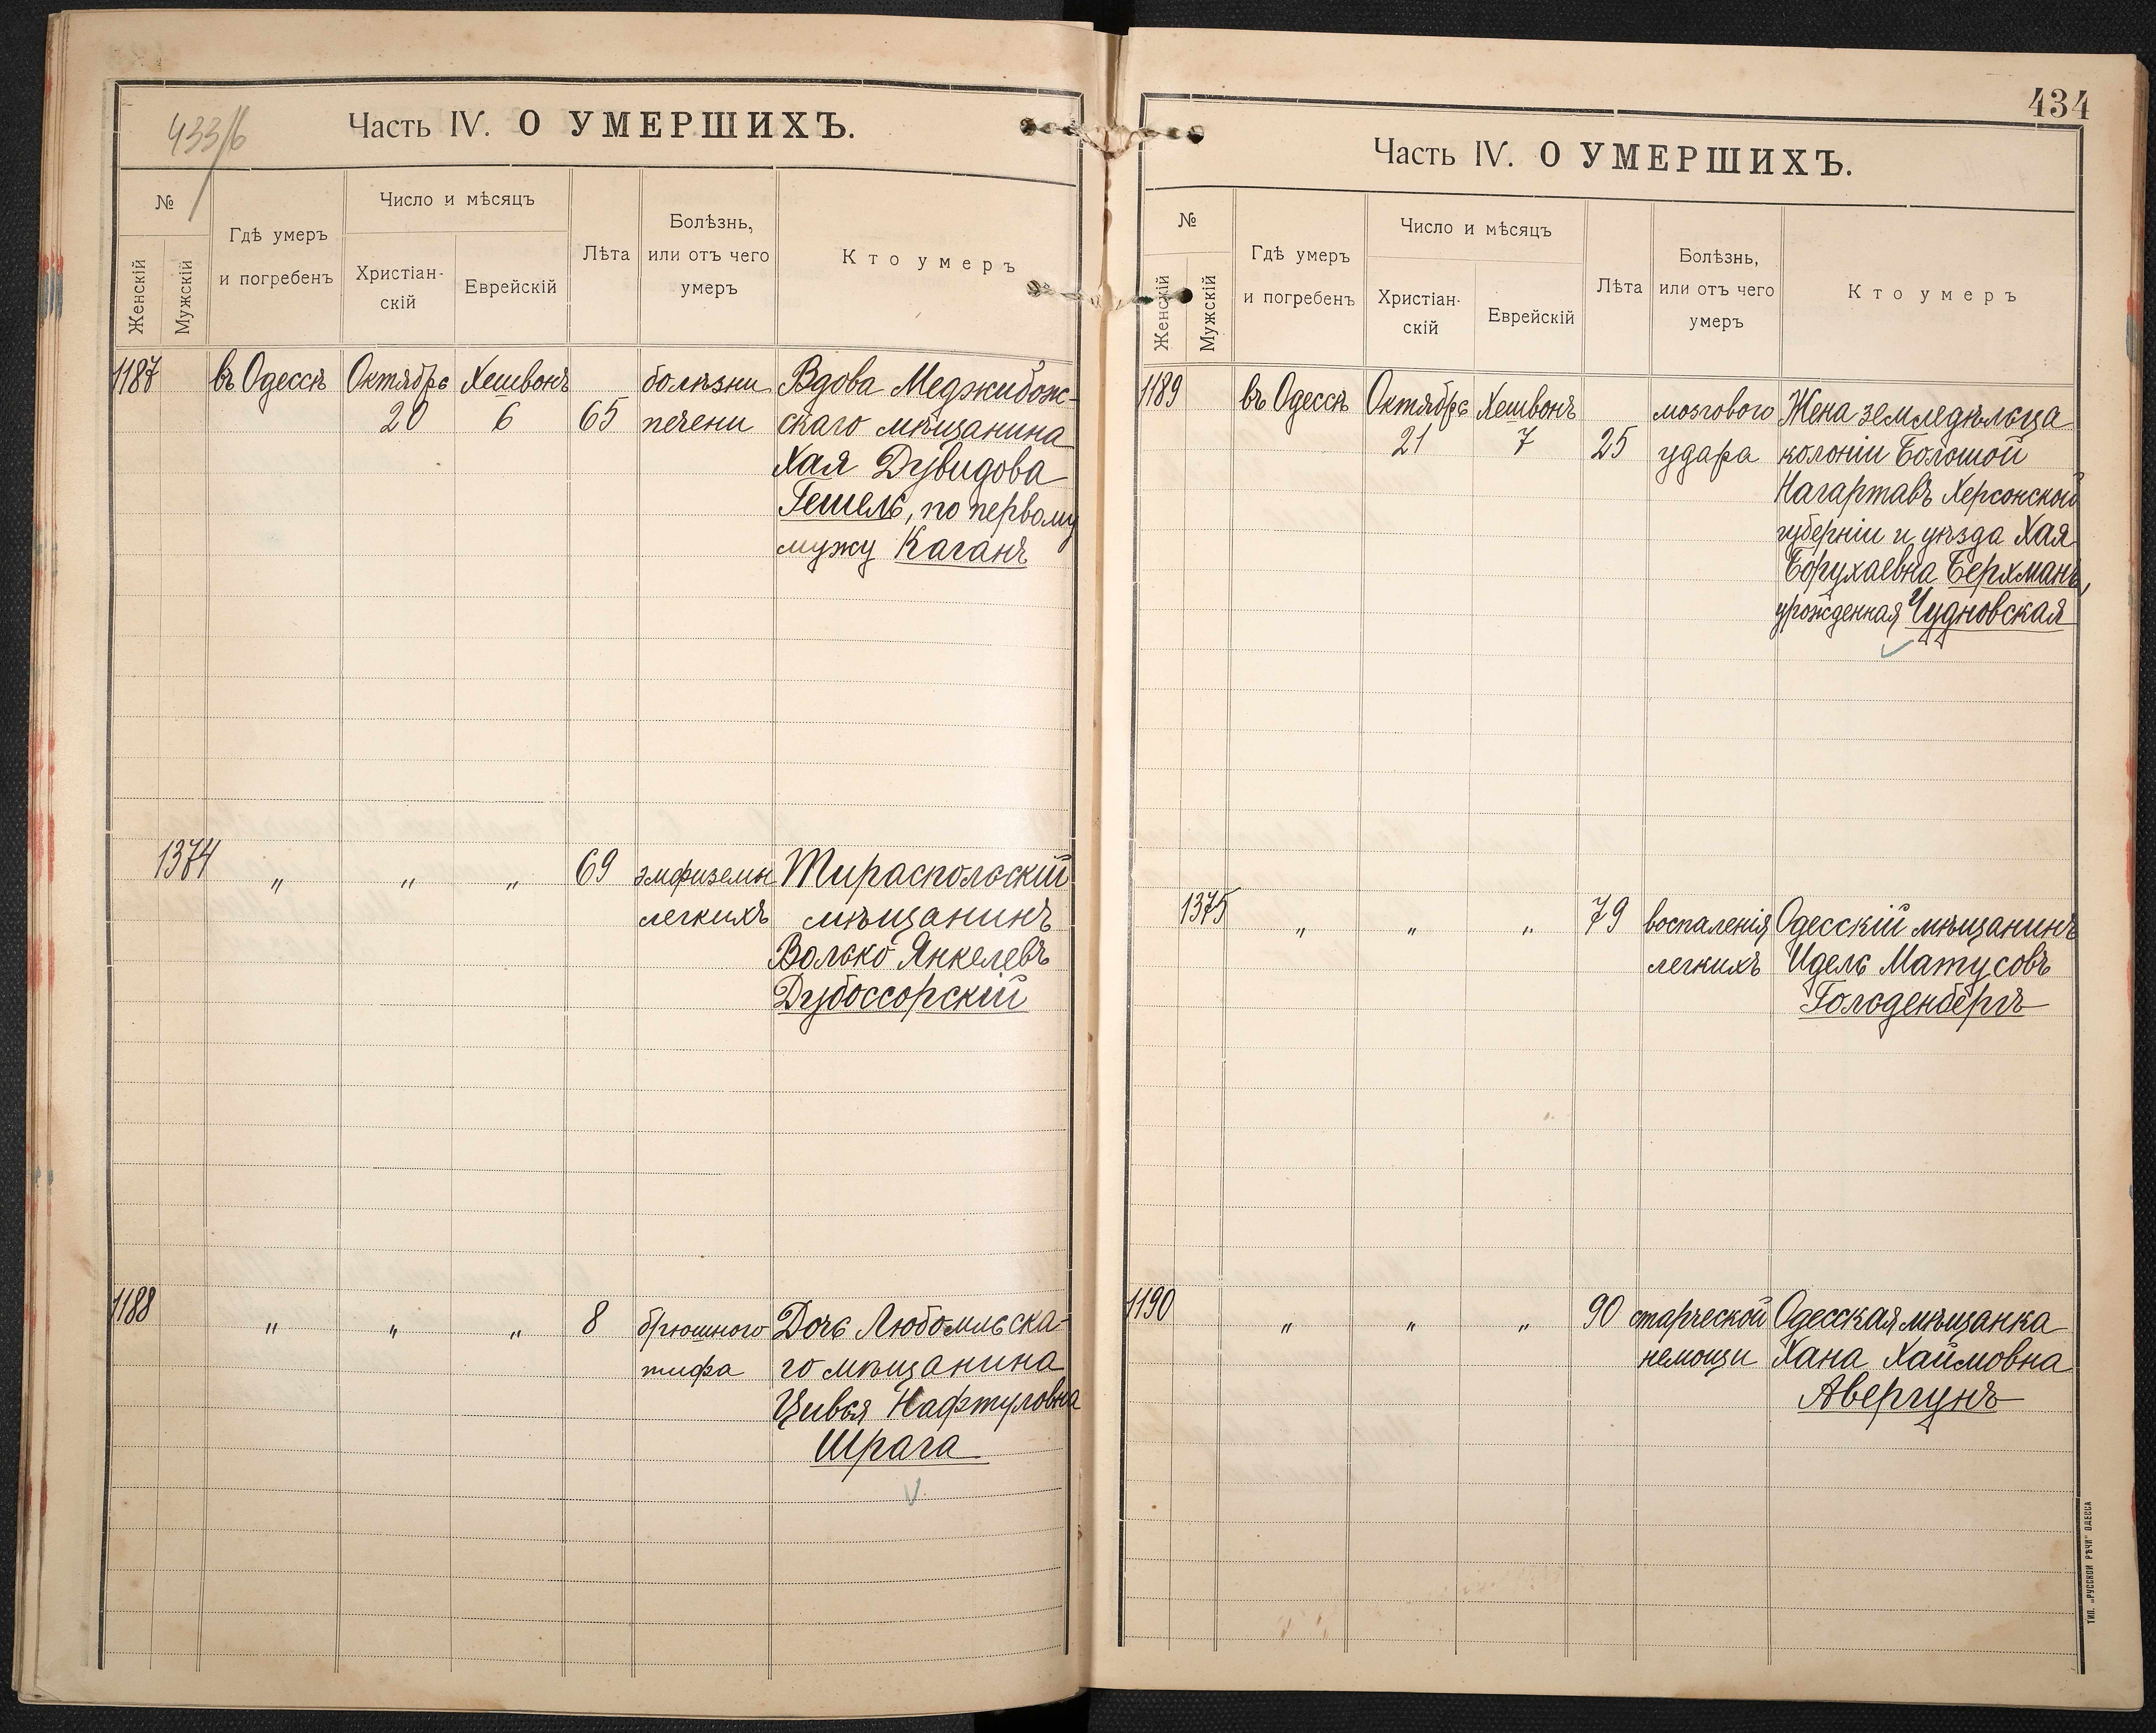 433/б
Часть IV. О УМЕРШИХЪ.
№
Женскій
Мужскій
Гдѣ умеръ
и погребенъ
Число и мѣсяцъ
Христіан-
скій
Еврейскій
Лѣта
Болѣзнь,
или отъ чего
умеръ
Кто умеръ
1187 въ Одессѣ Октябрь Хешвонъ болѣзни Вдова Меджибож-
20 6 65 печени скаго мѣщанина
Хая Дувидова
Гешель, по первому
мужу Каганъ
1374 " " " 69 эмфиземы Тираспольскій
легкихъ мѣщанинъ
Волько Янкелевъ
Дубоссорскій
1188 " " " 8 брюшного Дочь Любомльска-
тифа го мѣщанина
Цивья Нафтуловна
Шрага
434
Часть IV. О УМЕРШИХЪ.
№
Женскій
Мужскій
Гдѣ умеръ
и погребенъ
Число и мѣсяцъ
Христіан-
скій
Еврейскій
Лѣта
Болѣзнь,
или отъ чего
умеръ
Кто умеръ
1189 въ Одессѣ Октябрь Хешвонъ мозгового Жена земледѣльца
21 7 25 удара колоніи Большой
Нагартавъ Херсонской
губерніи и уѣзда Хая
Борухаевна Берхманъ,
урожденная Чудновская
1375 " " " 79 воспаленія Одесскій мѣщанинъ
легкихъ Идель Матусовъ
Гольденбергъ
1190 " " " 90 старческой Одесская мѣщанка
немощи Хана Хаимовна
Авергунъ
ТИП. „РУССКОЙ РѢЧИ" ОДЕССА